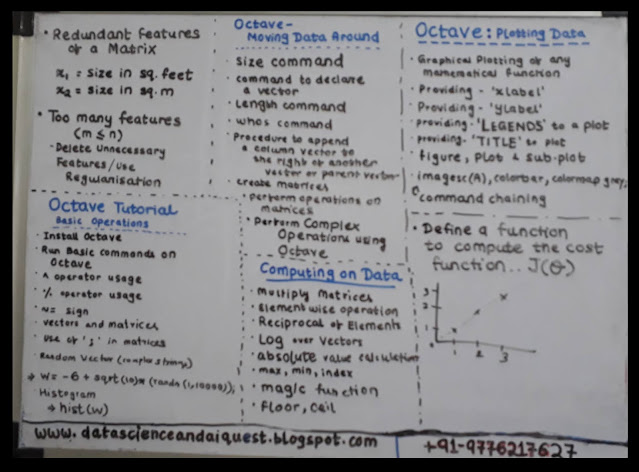 • Redundant features
of a Matrix
x₁ = size in sq. feet
x₂ = size in sq. m
• Too many features
(m ≤ n)
- Delete Unnecessary
Features / use
Regularisation
Octave Tutorial
Basic Operations
• Install Octave
• Run Basic commands on
Octave
• ^ operator usage
• % operator usage
• ~= sign
• vectors and matrices
• use of ';' in matrices
Random Vector (complex strings)
→ W = -6 + sqrt(10)*(randn(1,10000));
Histogram
→ hist(w)
Octave -
Moving Data Around
• size command
• command to declare
a vector
• Length command
• whos command
• Procedure to append
a column vector to
the right of another
vector or parent vector
• create matrices
• perform operations on
matrices
• Perform Complex
Operations using
Octave
Computing on Data
• multiply Matrices
• Element wise operation
• Reciprocal of Elements
• Log over Vectors
• absolute value calculation
• max, min, index
• magic function
• floor, ceil
Octave: Plotting Data
• Graphical Plotting of any
mathematical function
• Providing - 'xlabel'
• Providing - 'ylabel'
• providing - 'LEGENDS' to a plot
• providing - 'TITLE' to plot
• figure, plot & sub-plot
• imagesc(A), colorbar, colormap gray;
command chaining
• Define a function
to compute the cost
function... J(θ)
3
2
1
0
1 2 3
www.datascienceandaiquest.blogspot.com
+91-9776217627